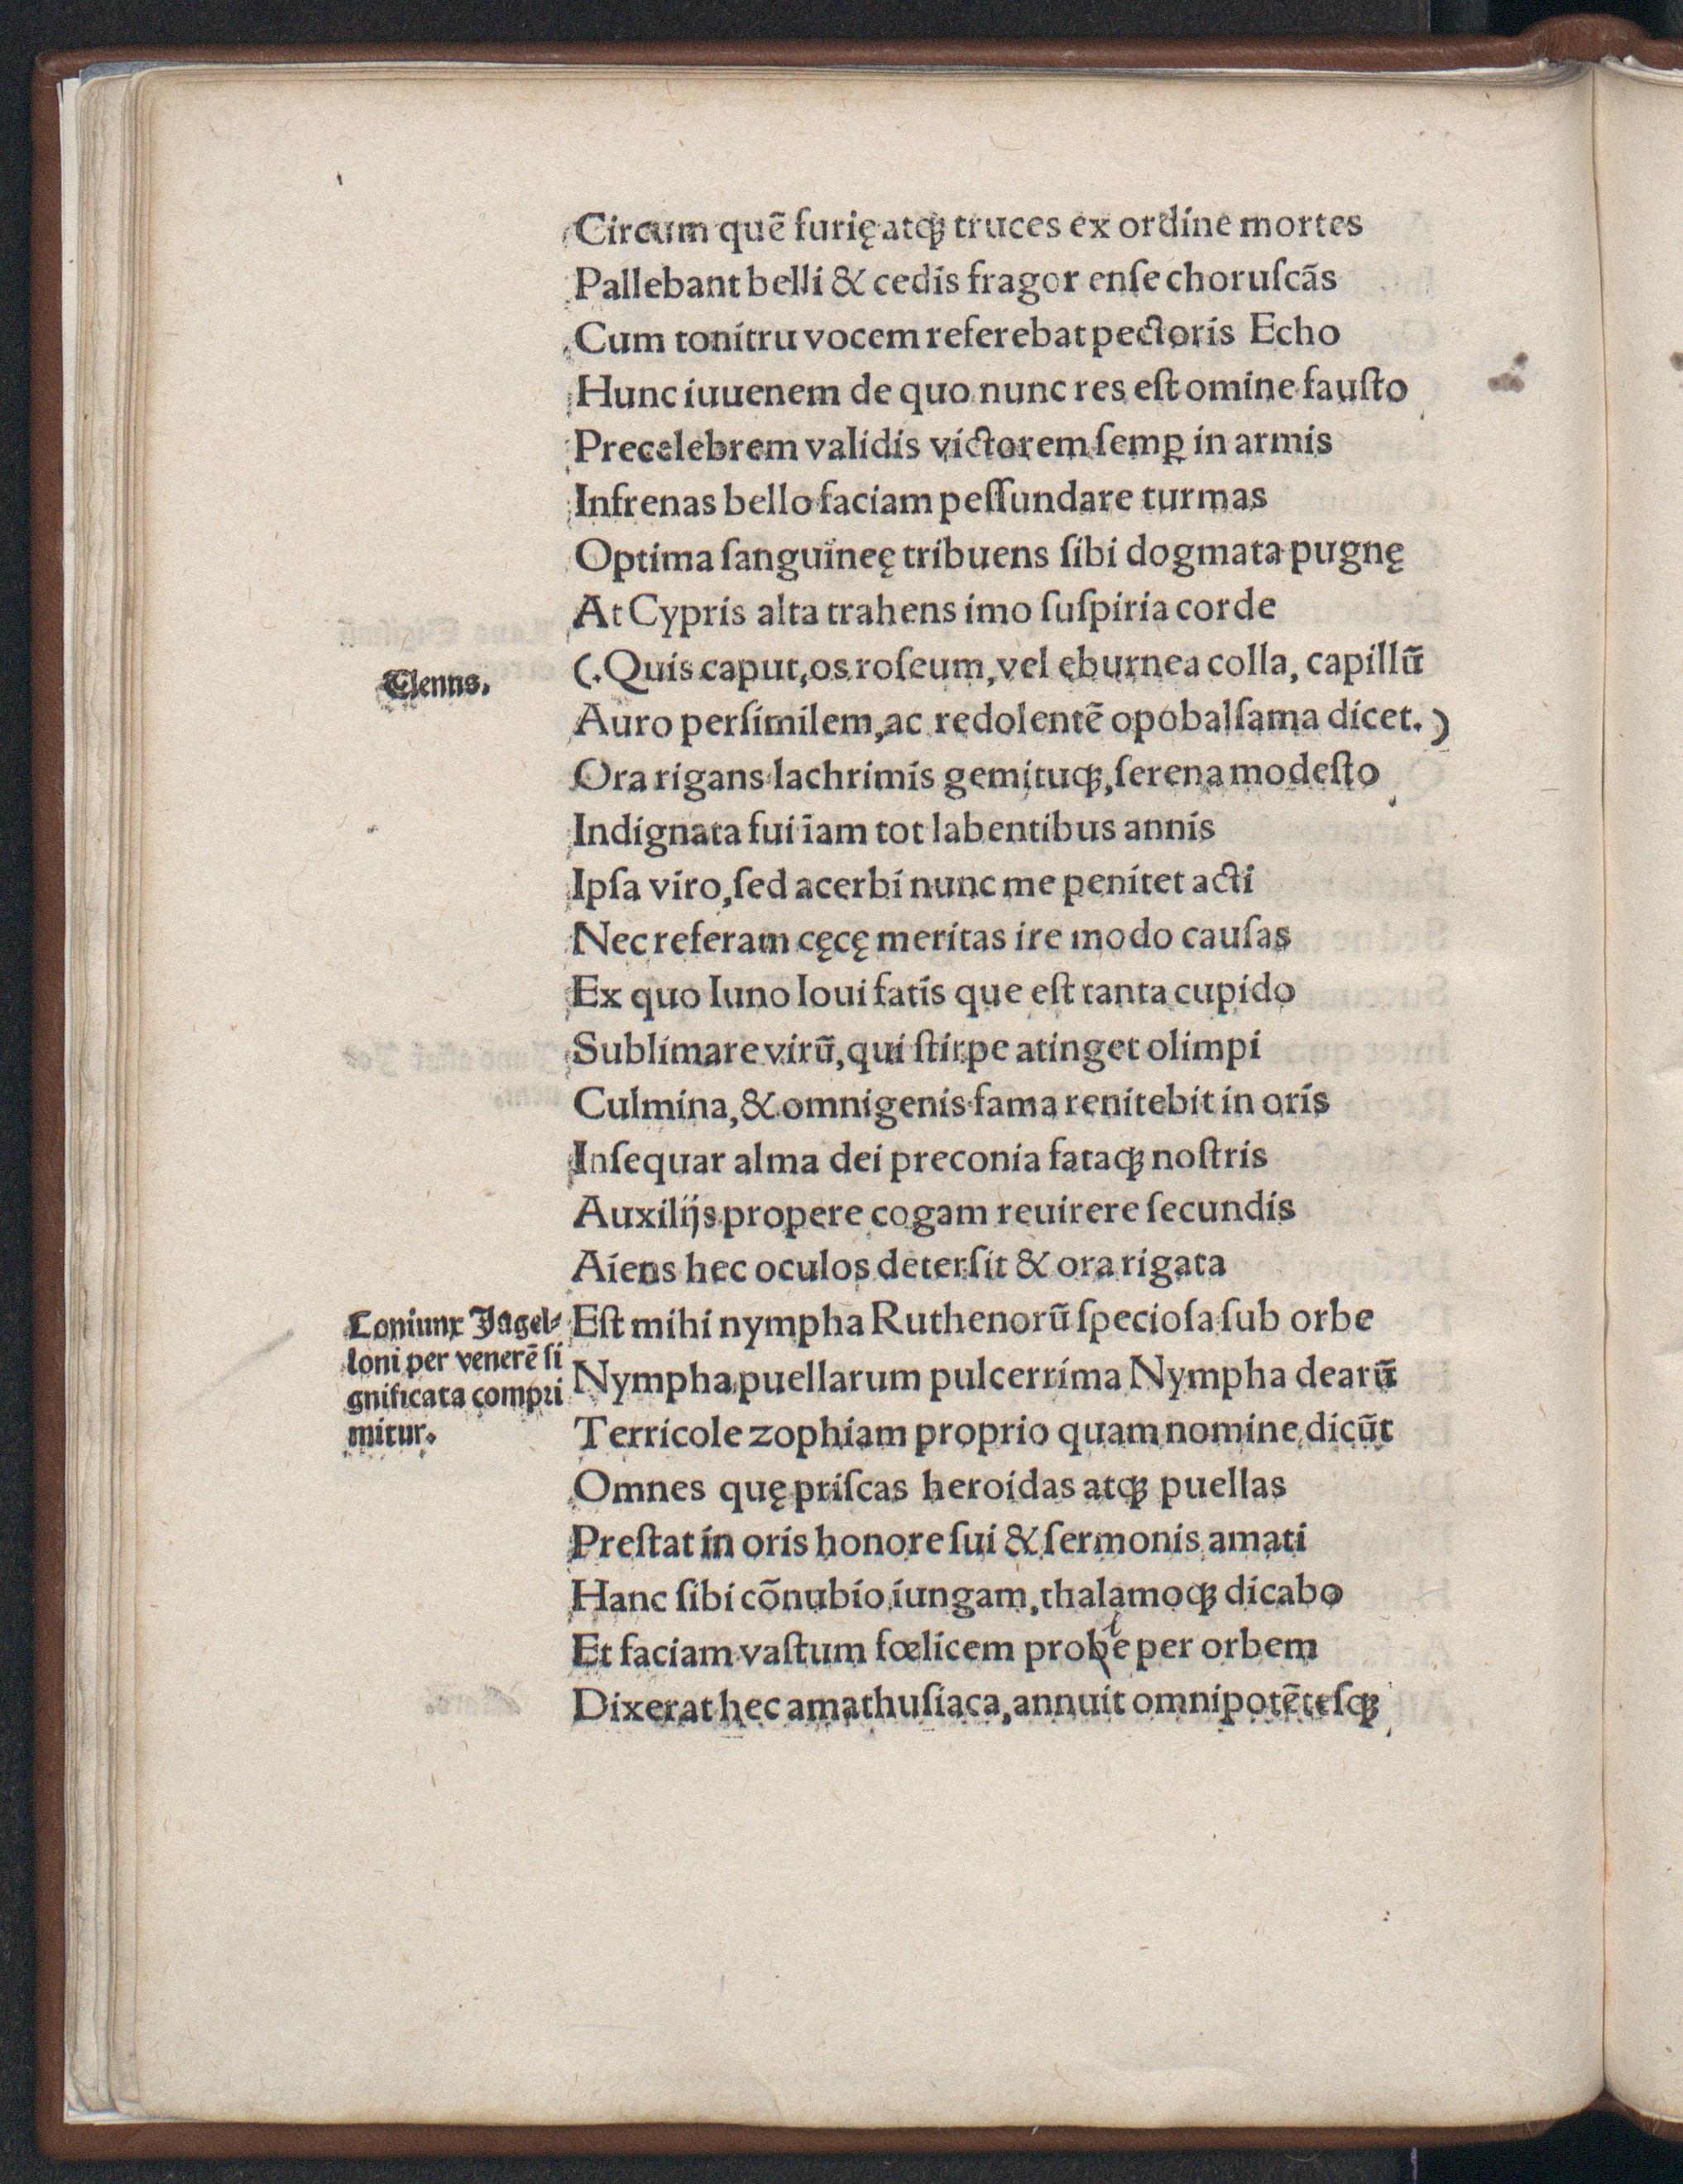 Circum quē furię atqꝫ truces ex ordine mortes
Pallebant belli & cedis fragor enſe choruſcãs
Cum tonitru vocem referebat pectoris Echo
Hunc iuuenem de quo nunc res eſt omine fauſto
Precelebrem validis victorem ſemꝑ in armis
Infrenas bello faciam peſſundare turmas
Optima ſanguineę tribuens ſibi dogmata pugnę
At Cypris alta trahens imo ſuſpiria corde
Venus.
(.Quis caput, os roſeum, vel ęburnea colla, capillū
Auro perſimilem, ac redolentē opobalſama dicet.)
Ora rigans lachrimis gemituqꝫ, ſerena modeſto
Indignata fui iam tot labentibus annis
Ipſa viro, ſed acerbi nunc me penitet acti
Nec referam cęcę meritas ire modo cauſas
Ex quo Iuno Ioui fatis que eſt tanta cupido
Sublimare virū, qui ſtirpe atinget olimpi
Culmina, & omnigenis fama renitebit in oris
Inſequar alma dei preconia fataqꝫ noſtris
Auxilijs propere cogam reuirere ſecundis
Aiens hec oculos deterſit & ora rigata
Coniunx Jagel⸗
loni per venerē ſi
gnificata compri
mitur.
Eſt mihi nympha Ruthenorū ſpecioſa ſub orbe
Nympha puellarum pulcerrima Nympha dearū
Terricole zophiam proprio quam nomine dicūt
Omnes quę priſcas heroidas atqꝫ puellas
Preſtat in oris honore ſui & ſermonis amati
Hanc ſibi cõnubio iungam, thalamoqꝫ dicabo
Et faciam vaſtum fœlicem probe per orbem
Dixerat hec amathuſiaca, annuit omnipotēteſqꝫ